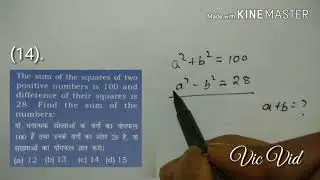 Made with KINEMASTER
(14).
The sum of the squares of two
positive numbers is 100 and
difference of their squares is
28. Find the sum of the
numbers:
दो धनात्मक संख्याओं के वर्गों का योगफल
100 है तथा उनके वर्गों का अंतर 28 है, तो
संख्याओं का योगफल ज्ञात करो।
(a) 12 (b) 13 (c) 14 (d) 15
a² + b² = 100
a² - b² = 28
a + b = ?
Vic Vid